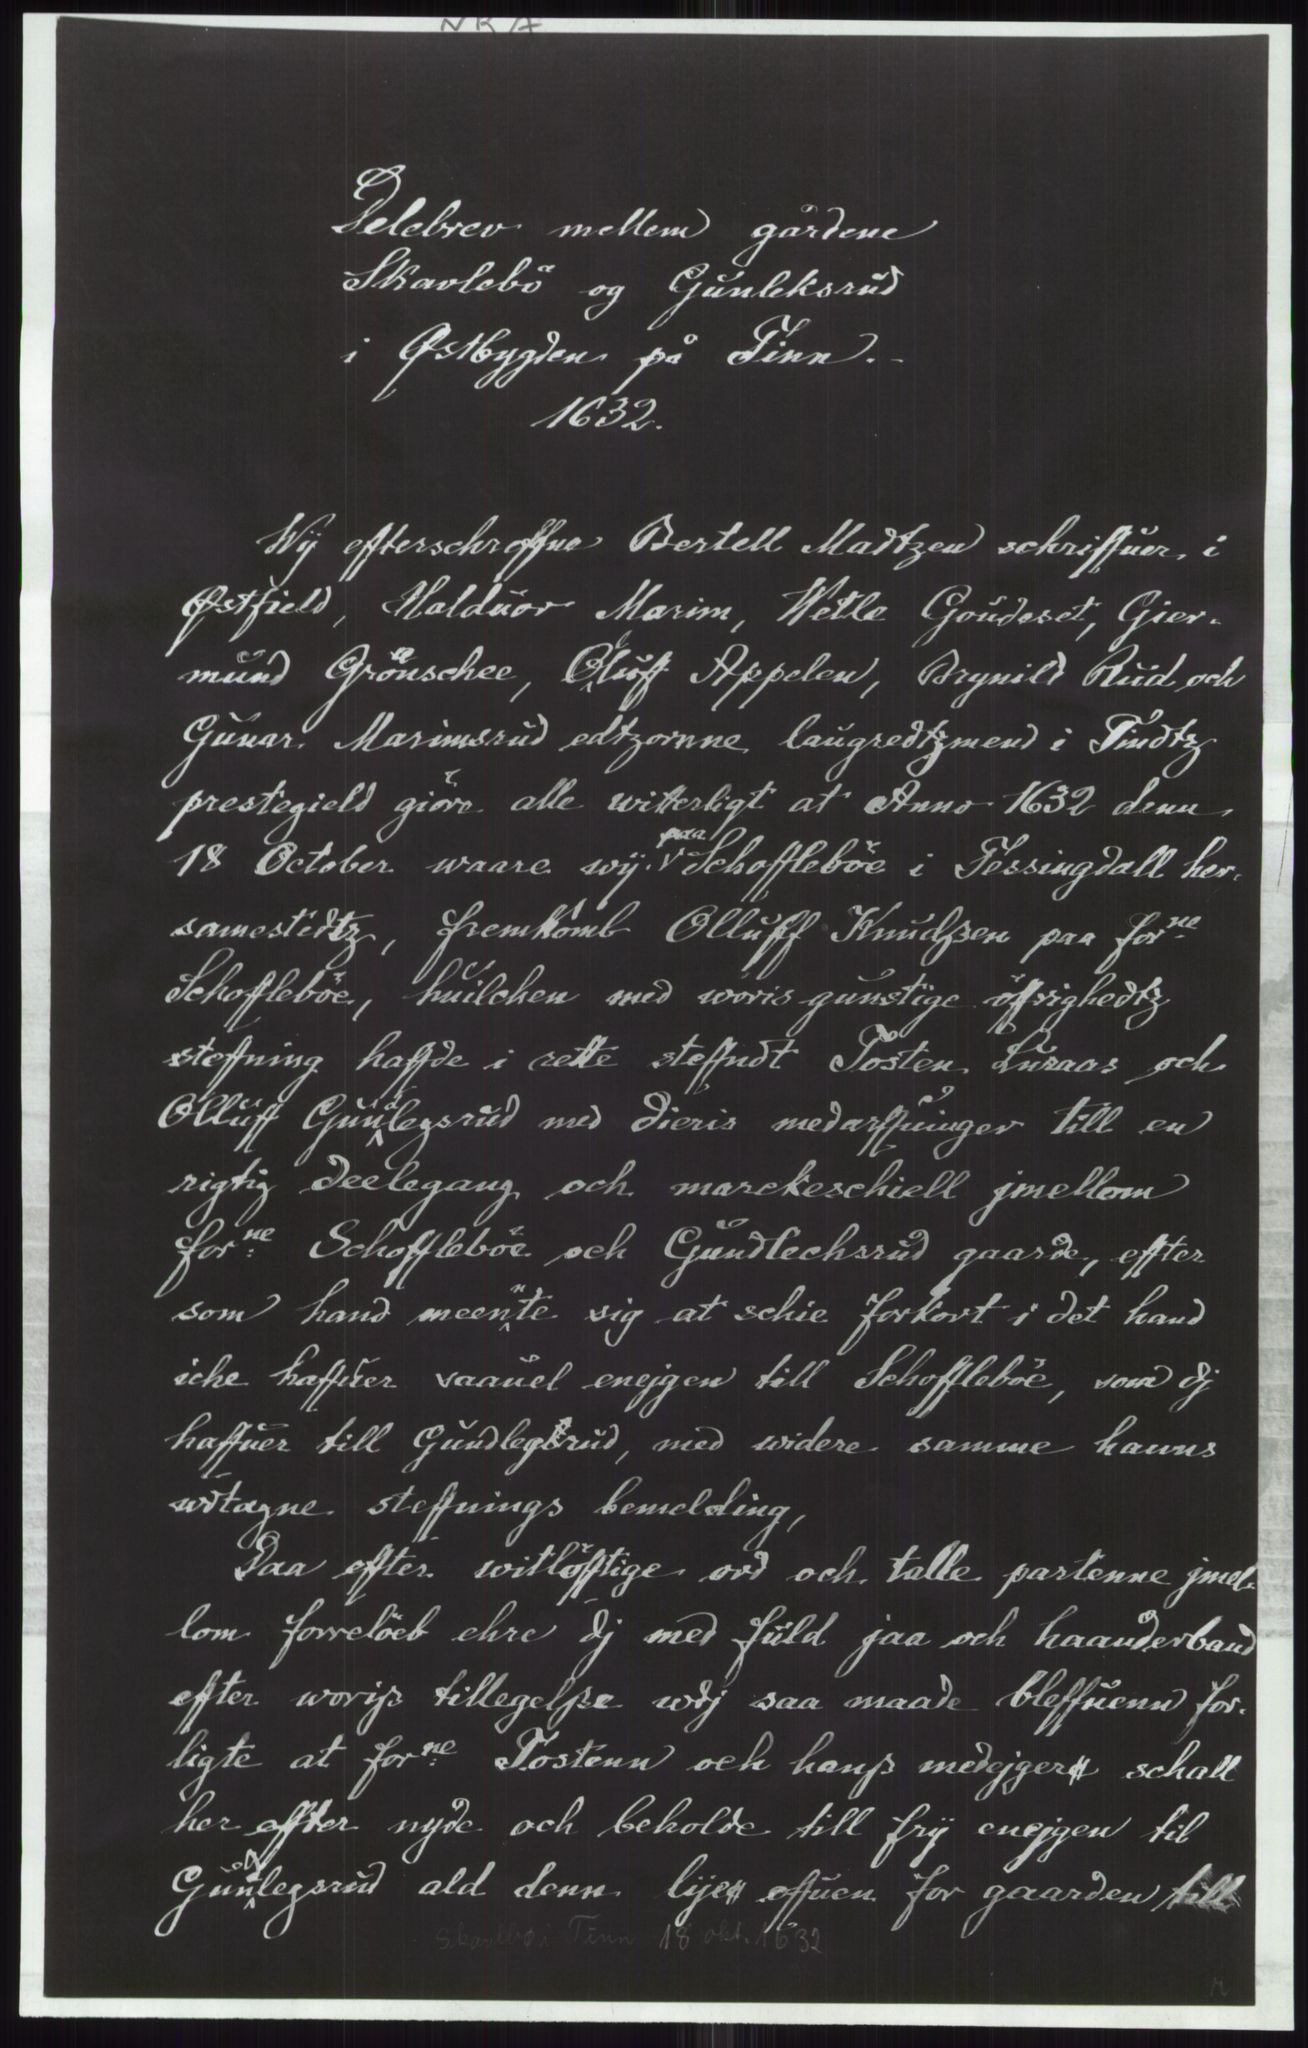 NRA
Delebrev mellem gårdene
Skavlebö og Gunleksrud
i Østbygden på Tinn.-
1632.
Wÿ efterschrefne Bertell Madtzen schriffuer i
Østfield, Halduor Marim, Wetle Goudeset, Gier-
mund Grönschee, Oluff Appelen, Brynild Rud och
Gunar Marimsrud edtzornne laugredtzmend i Tindtz
prestegield giöre alle witterligt at Anno 1632 denn
18 October waare wÿ paa Schofflebøe i Tessingdall her-
samestedtz, fremkomb Olluff Knudsen paa forne
Schoflebøe, huilchen med woris gunstige öffrighedtz
stefning haffde i rette steffndt Tosten Luraas och
Olluff Gunlegsrud med dieris medarffuinger till en
rigtig deelegang och marckeschiell jmellom
forne Schofflebøe och Gundlechsrud gaarde, effter
som hand meente sig at schie forkort i det hand
iche haffuer saauel enejgen till Schofflebøe, som dj
haffuer till Gundlegsrud, med widere samme hanns
wdtagne steffnings bemelding,
Daa efter witlöfftige ord och talle partenne jmel-
lom forrelöeb ehre dj med fuld jaa och haanderband
efter worisz tillegelsze wdj saa maade bleffuenn for-
ligte at forne Tostenn och hansz medejger schall
her effter nyde och beholde till frÿ enejgen til
Gunlegsrud ald denn lije effuen for gaarden till
Skavlebø i Tinn 18 okt. 1632